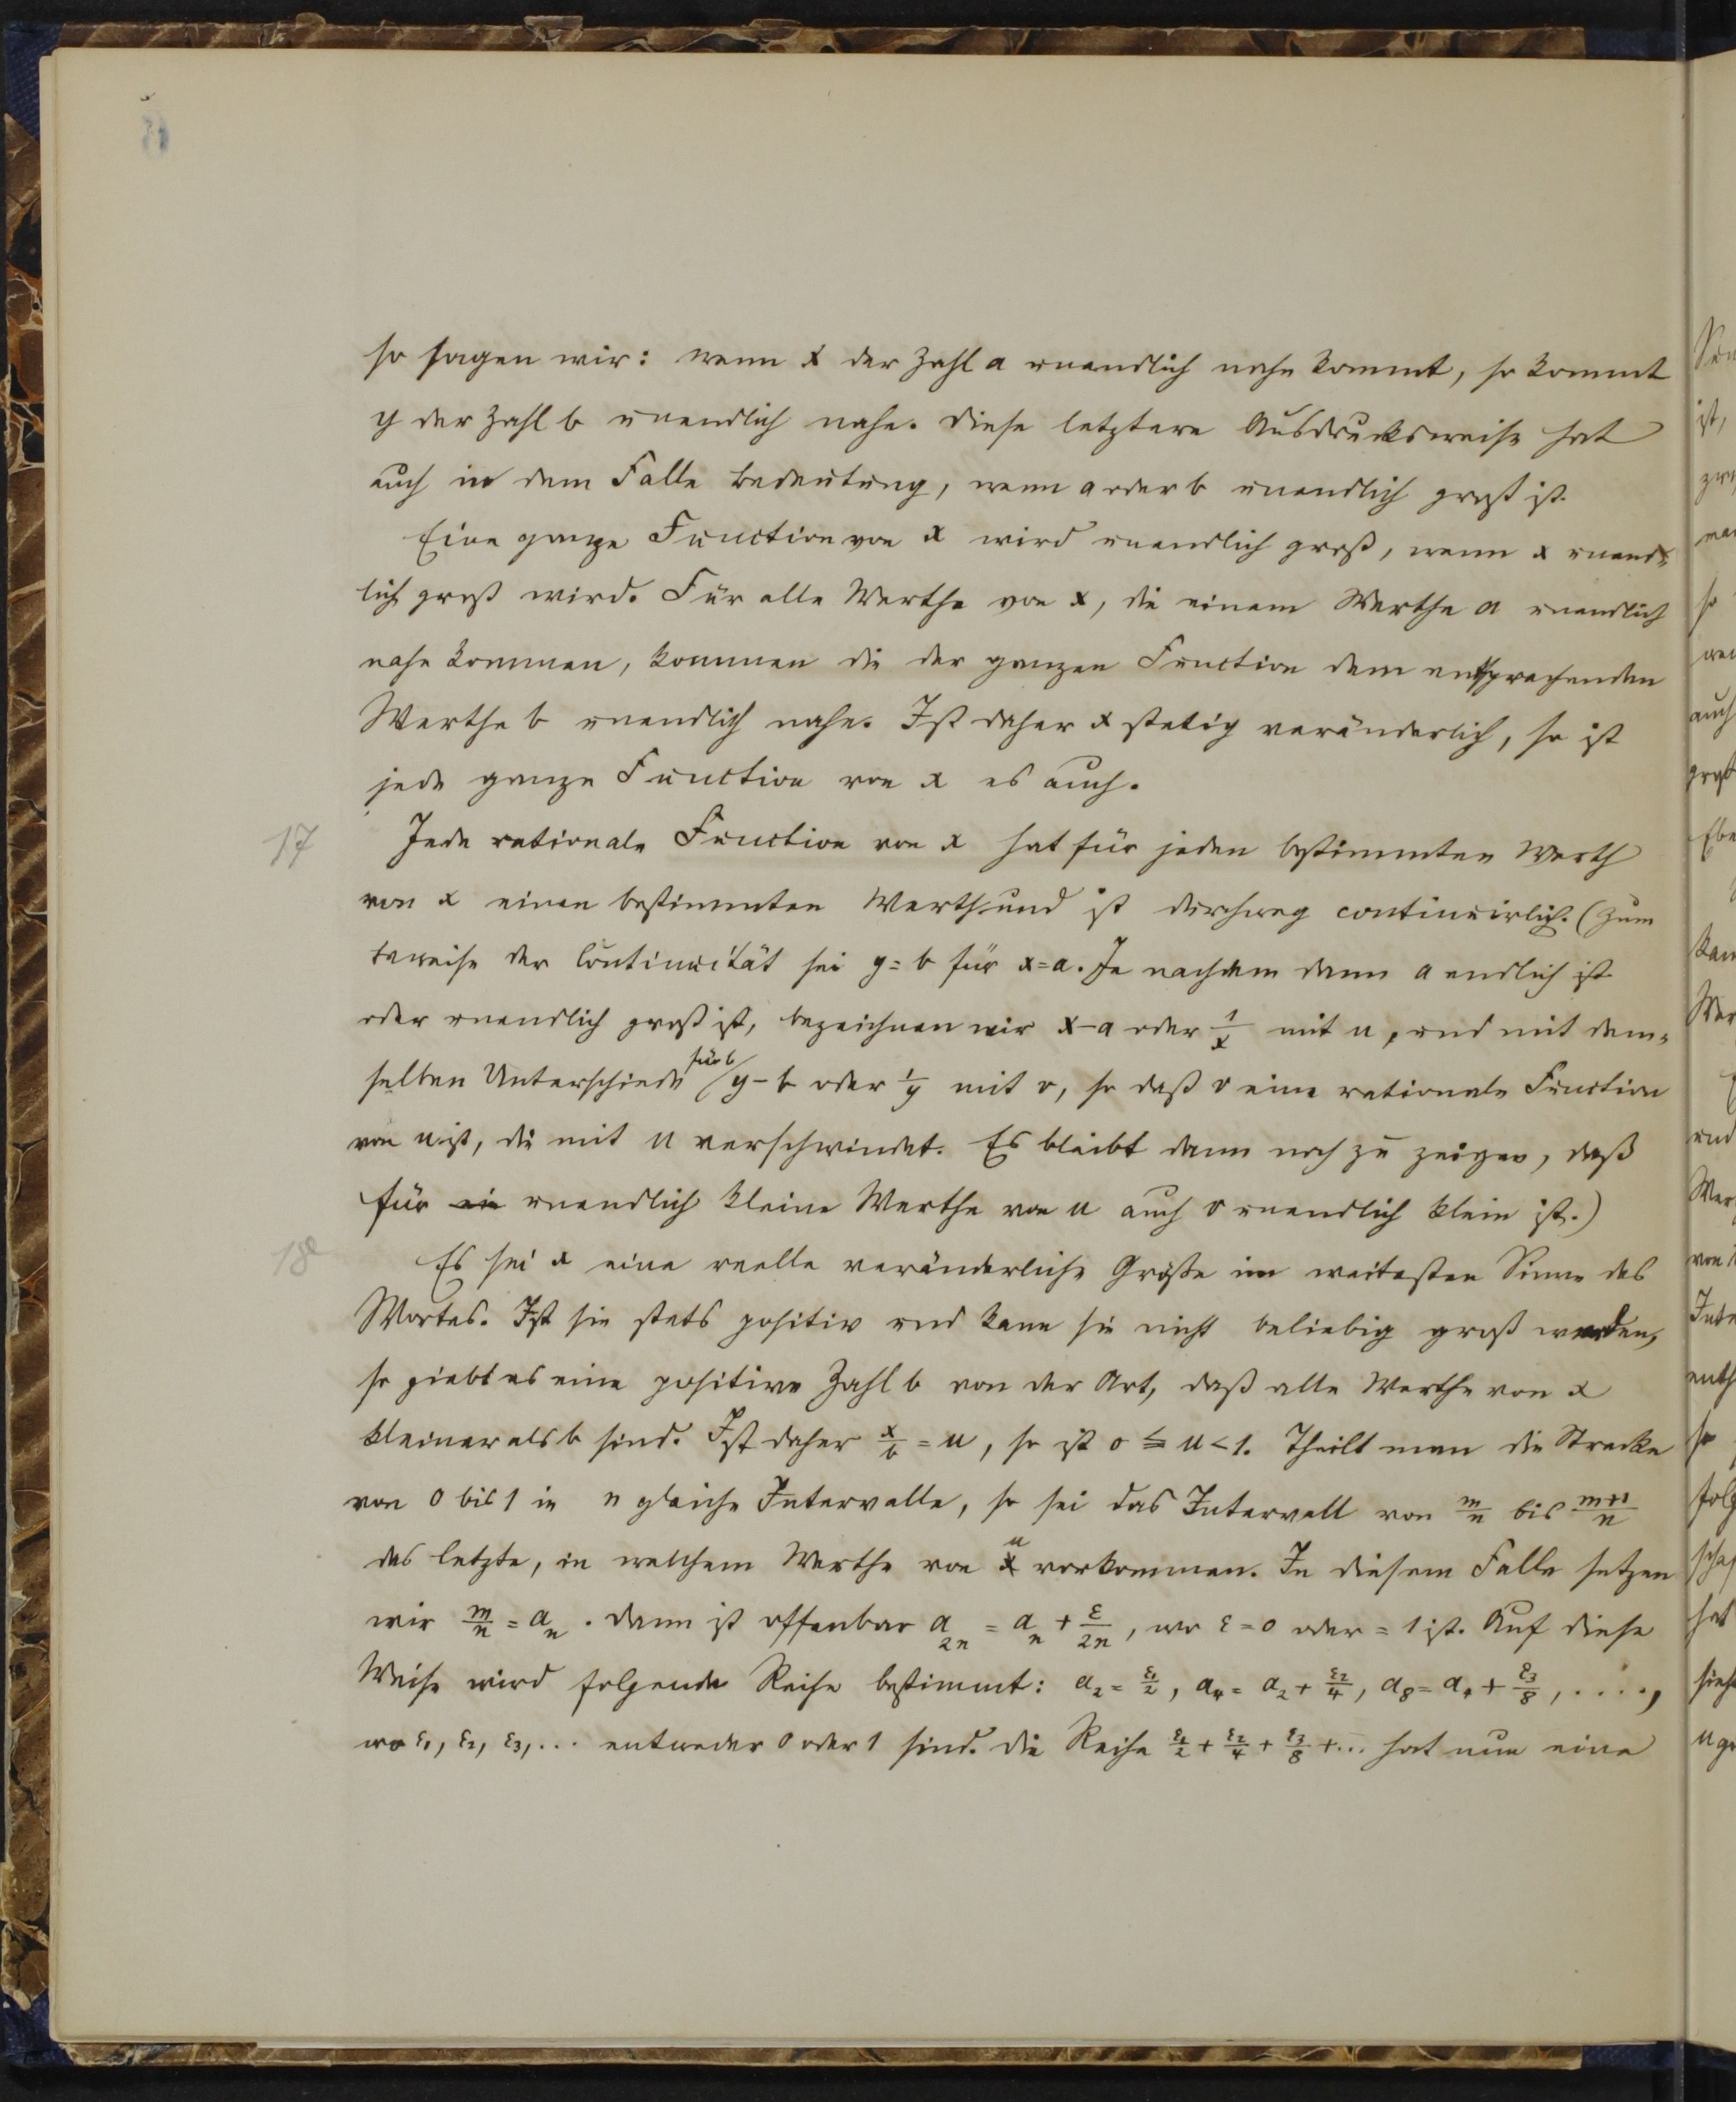 so sagen wir: wenn x der Zahl a unendlich nahe kommt, so kommt
y der Zahl b unendlich nahe. Diese letztere Ausdrucksweise hat
auch in dem Falle Bedeutung, wenn a oder b unendlich groß ist.
Eine ganze Function von x wird unendlich groß, wenn x unend-
lich groß wird. Für alle Werthe von x, die einem Werthe a unendlich
nahe kommen, kommen die der ganzen Function dem entsprechenden
Werthe b unendlich nahe. Ist daher x stetig veränderlich, so ist
jede ganze Function von x es auch.
17 Jede rationale Function von x hat für jeden bestimmten Werth
von x einen bestimmten Werth und ist durchweg continuirlich. (Zum
Beweise der Continuität sei y = b für x = a. Je nachdem dann a endlich ist
oder unendlich groß ist, bezeichnen wir x - a oder 1/x mit u, und mit dem-
selben Unterschiede für b y - b oder 1/y mit v, so daß v eine rationale Function
von u ist, die mit u verschwindet. Es bleibt dann noch zu zeigen, daß
für ein unendlich kleine Werthe von u auch v unendlich klein ist.)
18 Es sei x eine reelle veränderliche Größe im weitesten Sinne des
Wortes. Ist sie stets positiv und kann sie nicht beliebig groß werden,
so giebt es eine positive Zahl b von der Art, daß alle Werthe von x
kleiner als b sind. Ist daher x/b = u, so ist 0 ≦ u < 1. Theilt man die Strecke
von 0 bis 1 in n gleiche Intervalle, so sei das Intervall von m/n bis m+1/n
das letzte, in welchem Werthe von u vorkommen. In diesem Falle setzen
wir m/n = a_n. Dann ist offenbar a_2n = a_n + ε/2n, wo ε = 0 oder = 1 ist. Auf diese
Weise wird folgende Reihe bestimmt: a₂ = ε₁/2, a₄ = a₂ + ε₂/4, a₈ = a₄ + ε₃/8, ....,
wo ε₁, ε₂, ε₃, ... entweder 0 oder 1 sind. Die Reihe ε₁/2 + ε₂/4 + ε₃/8 + ... hat nun eine